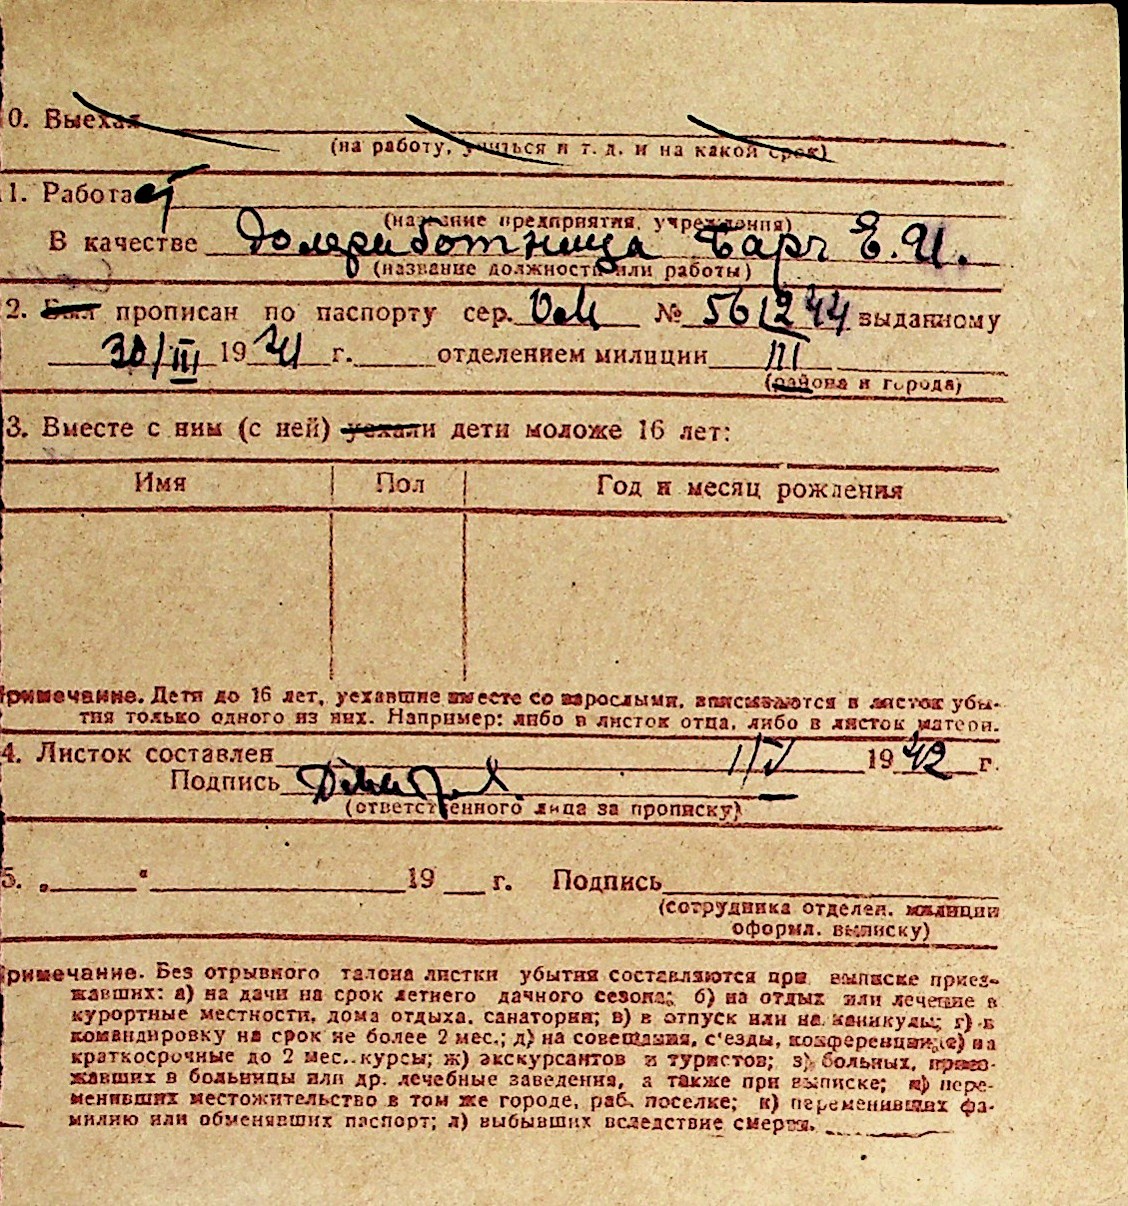 0. Выехал
(на работу, учиться и т. д. и на какой срок)
1. Работает
(название предприятия, учреждения)
В качестве домработница Барч Е. И.
(название должности или работы)
2. Был прописан по паспорту сер. № 561244 выданному
30/III 1941 г. отделением милиции III
(района и города)
3. Вместе с ним (с ней) уехали дети моложе 16 лет:
Имя Пол Год и месяц рождения
римечание. Дети до 16 лет, уехавшие вместе со взрослыми, вписываются в листок убы-
тия только одного из них. Например: либо в листок отца, либо в листок матери.
4. Листок составлен 1/V 1942 г.
Подпись
(ответственного лица за прописку)
5. „ “ 19 г. Подпись
(сотрудника отделен. милиции
оформл. выписку)
римечание. Без отрывного талона листки убытия составляются при выписке приез-
жавших: а) на дачи на срок летнего дачного сезона; б) на отдых или лечение в
курортные местности, дома отдыха, санатории; в) в отпуск или на каникулы; г) в
командировку на срок не более 2 мес.; д) на совещания, с'езды, конференции; е) на
краткосрочные до 2 мес. курсы; ж) экскурсантов и туристов; з) больных, приез-
жавших в больницы или др. лечебные заведения, а также при выписке; и) пере-
менивших местожительство в том же городе, раб. поселке; к) переменивших фа-
милию или обменявших паспорт; л) выбывших вследствие смерти.